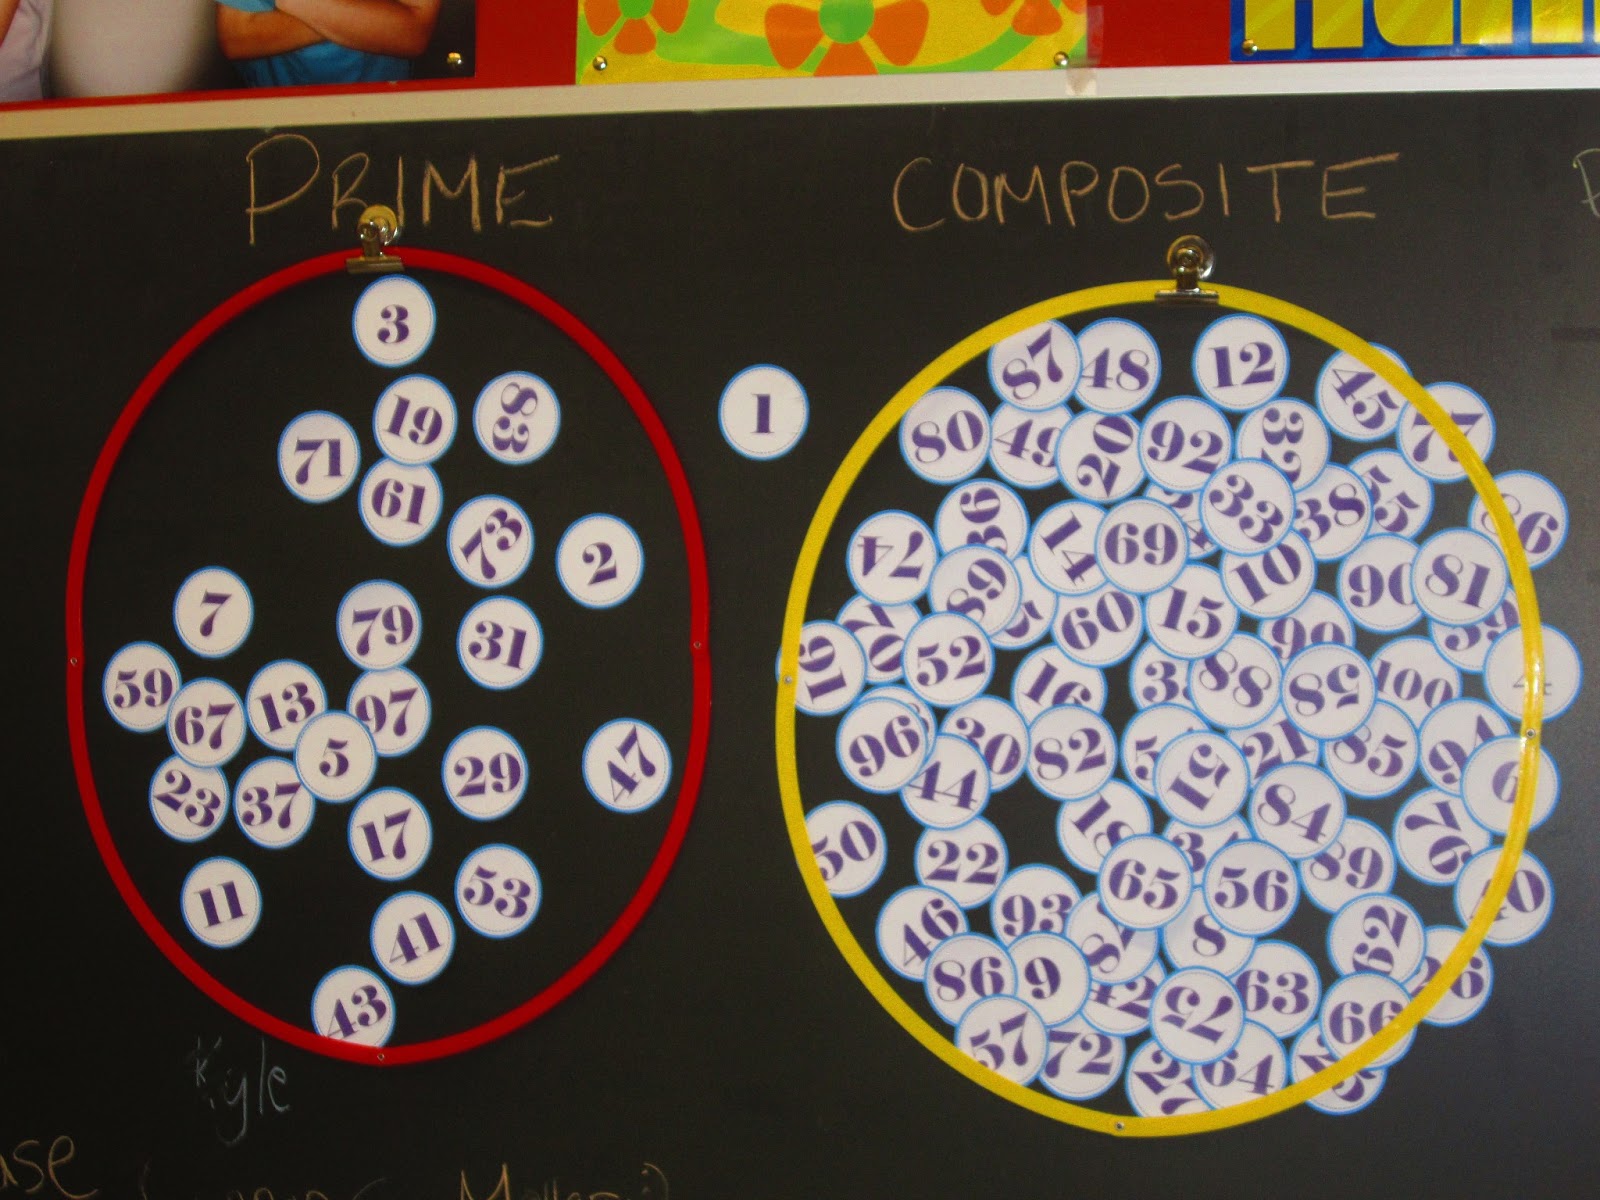 PRIME
COMPOSITE
3
87
48
12
45
77
19
83
1
80
49
20
92
32
71
61
33
38
55
86
73
2
74
14
69
10
90
81
68
7
79
31
52
60
15
59
67
13
97
16
88
58
100
5
96
30
82
21
85
94
29
47
44
51
84
76
6
23
37
17
50
22
18
34
65
56
89
40
11
41
53
46
93
8
62
43
86
9
42
75
63
66
26
57
72
64
Kyle